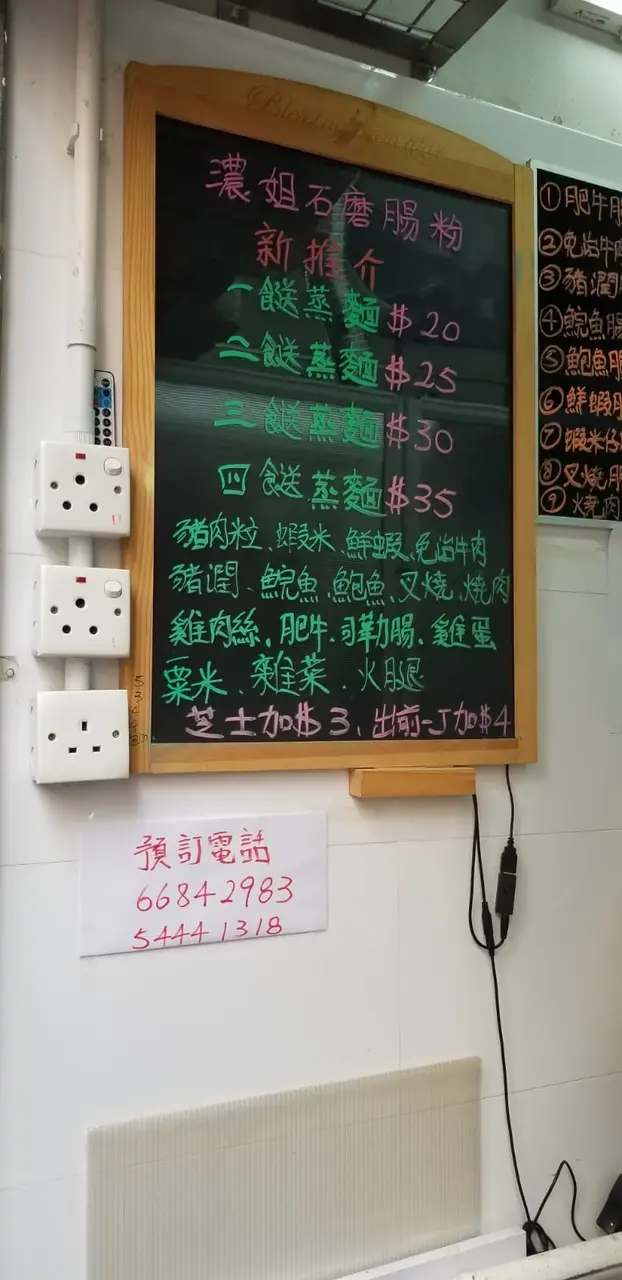 濃姐石磨腸粉
新推介
一餸蒸麵$20
二餸蒸麵$25
三餸蒸麵$30
四餸蒸麵$35
豬肉粒、蝦米、鮮蝦、免治牛肉
豬潤、鯇魚、鮑魚、叉燒、燒肉
雞肉絲、肥牛、司華力腸、雞蛋
粟米、雜菜、火腿
芝士加$3、出前一丁加$4
預訂電話
66842983
54441318
①肥牛
②免治牛
③豬潤
④鯇魚腸
⑤鮑魚
⑥鮮蝦
⑦蝦米
⑧叉燒
⑨燒肉